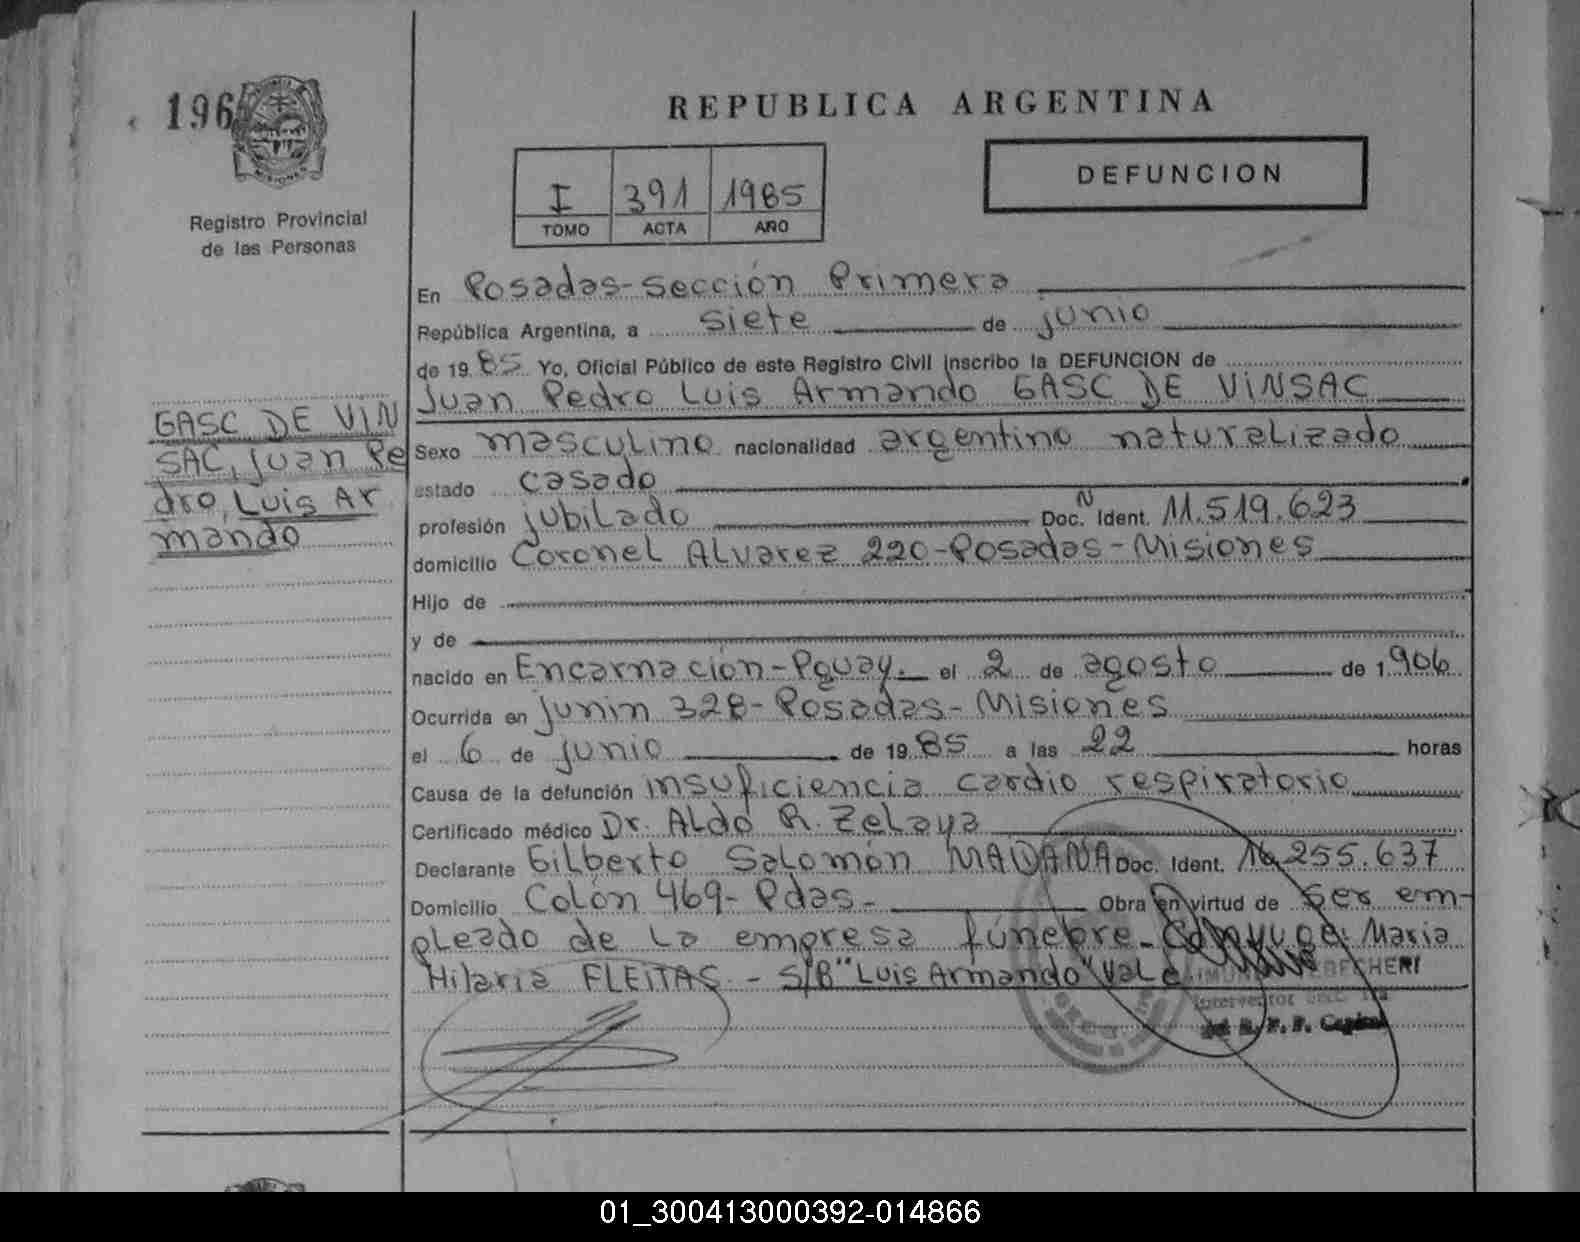 196
MISIONES
Registro Provincial
de las Personas
REPUBLICA ARGENTINA
I 391 1985
TOMO ACTA AÑO
DEFUNCION
En Posadas-Sección Primera
República Argentina, a siete de junio
de 1985 Yo, Oficial Público de este Registro Civil inscribo la DEFUNCION de
Juan Pedro Luis Armando GASC DE VINSAC
GASC DE VIN
SAC, Juan Pe
dro, Luis Ar
mando
Sexo masculino nacionalidad argentino naturalizado
estado casado
profesión jubilado Doc. N Ident. 11.519.623
domicilio Coronel Alvarez 220-Posadas-Misiones
Hijo de
y de
nacido en Encarnacion-Pguay. el 2 de agosto de 1906
Ocurrida en Junin 328-Posadas-Misiones
el 6 de junio de 1985 a las 22 horas
Causa de la defunción insuficiencia cardio respiratorio
Certificado médico Dr. Aldo R. Zelaya
Declarante Gilberto Salomón MADANA Doc. Ident. 16.255.637
Domicilio Colón 469-Pdas- Obra en virtud de ser em-
pleado de la empresa fúnebre-Conyuge: Maria
Hilaria FLEITAS.-S/B "Luis Armando" Vale
Interventor Secc. 1ra
del R. P. P. Capital
01_300413000392-014866